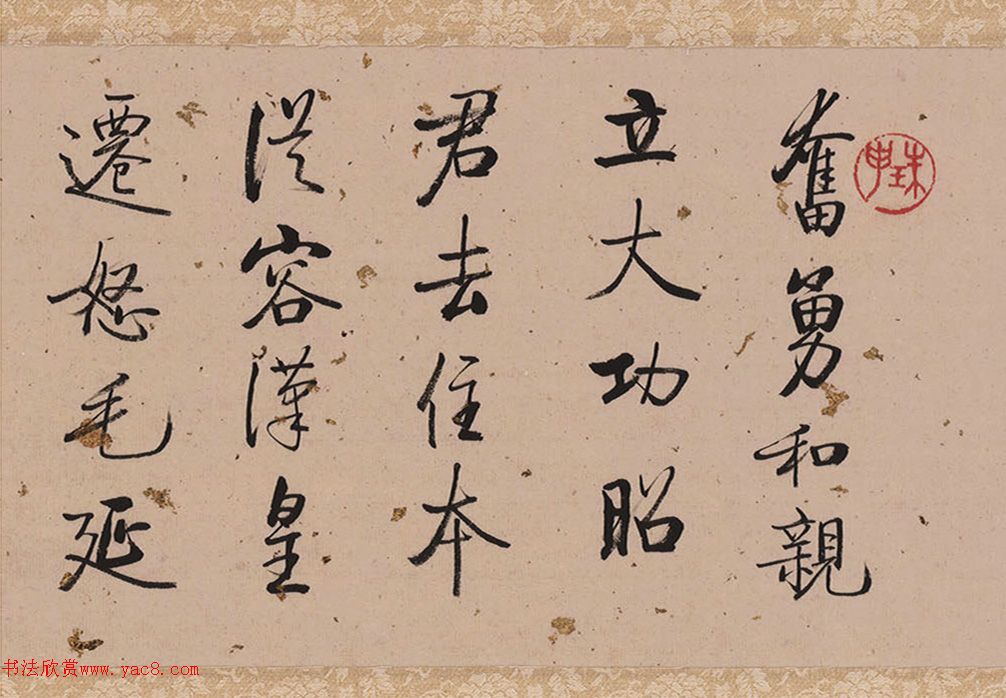 奮勇和親
立大功昭
君去住本
從容漢皇
遷怒毛延
書法欣赏www.yac8.com